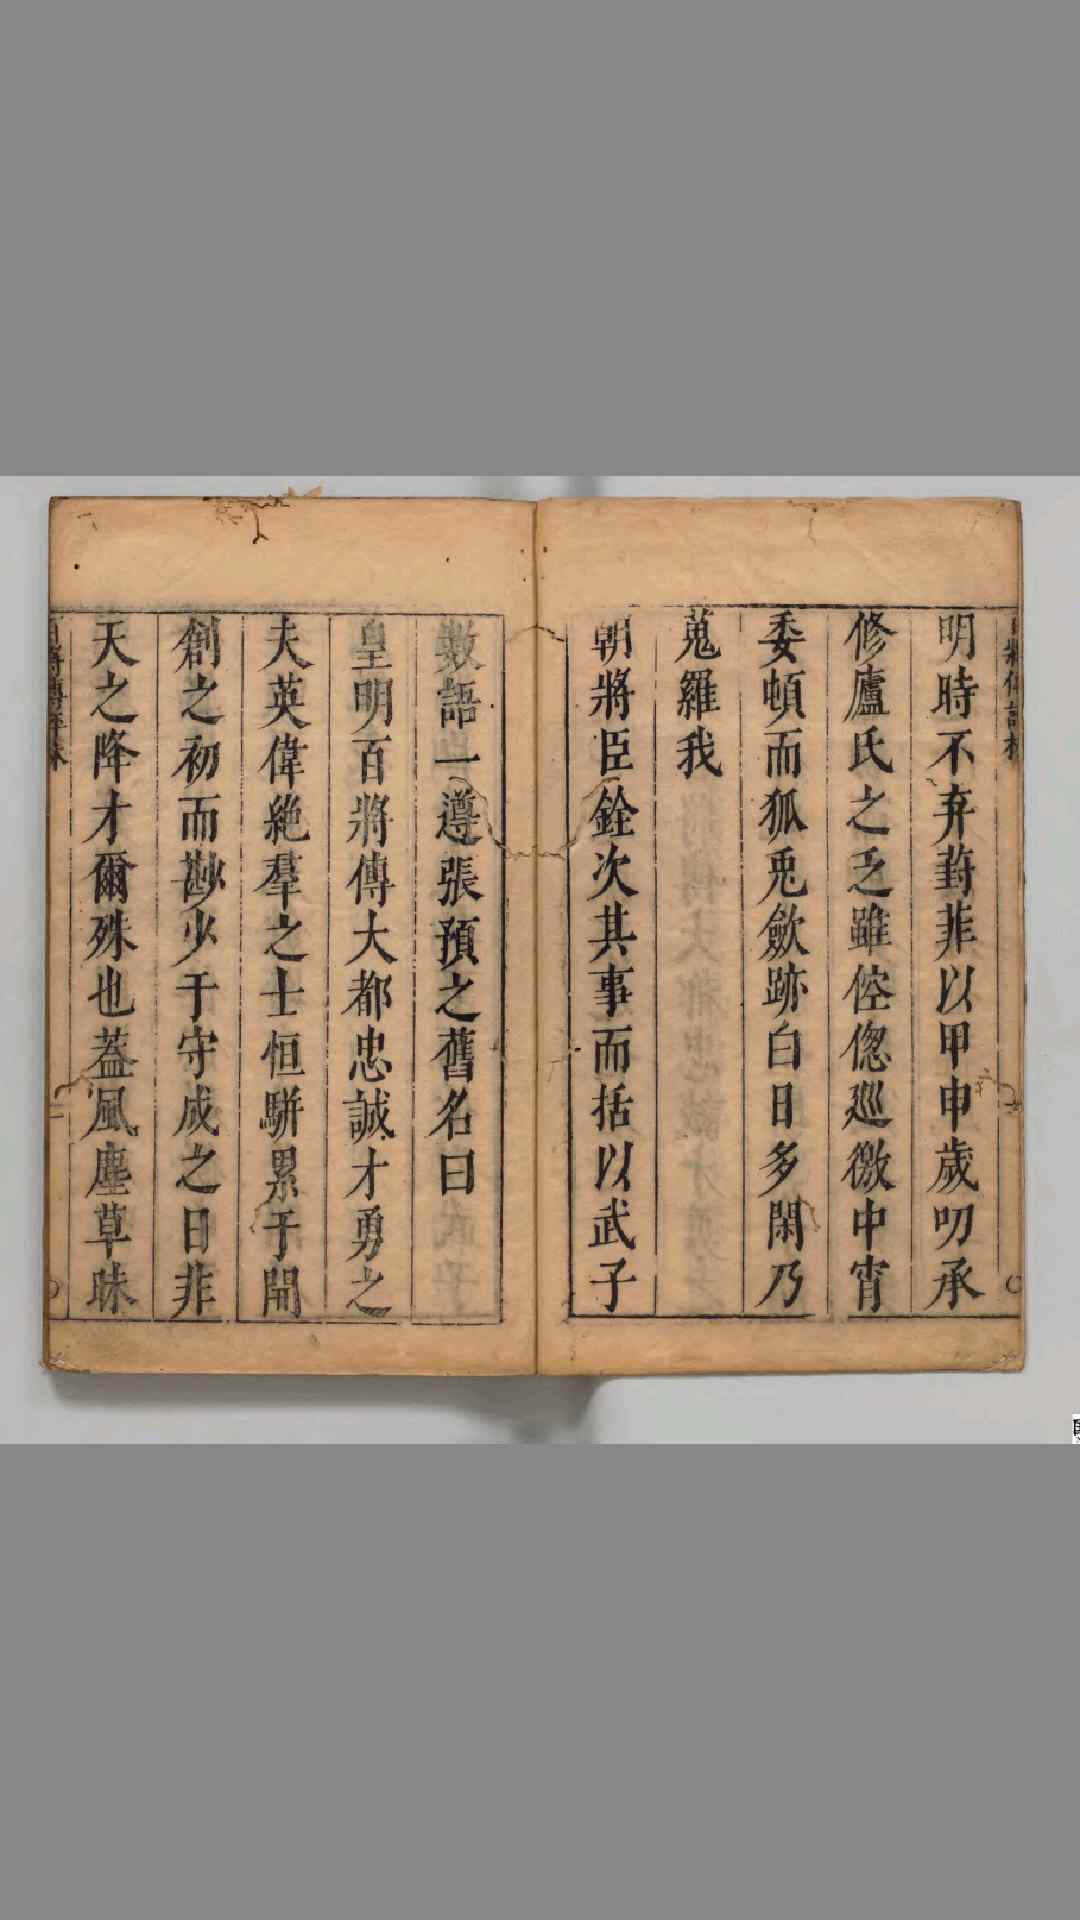 明時不弃葑菲以甲申歲叨承
修廬氏之乏雖倥傯巡徼中宵
委頓而狐兎歛跡白日多閑乃
蒐羅我
朝將臣銓次其事而括以武子
數語一遵張預之舊名曰
皇明百將傳大都忠誠才勇之
夫英偉絶羣之士恒駢累于開
創之初而尠少于守成之日非
天之降才爾殊也蓋風塵草昧